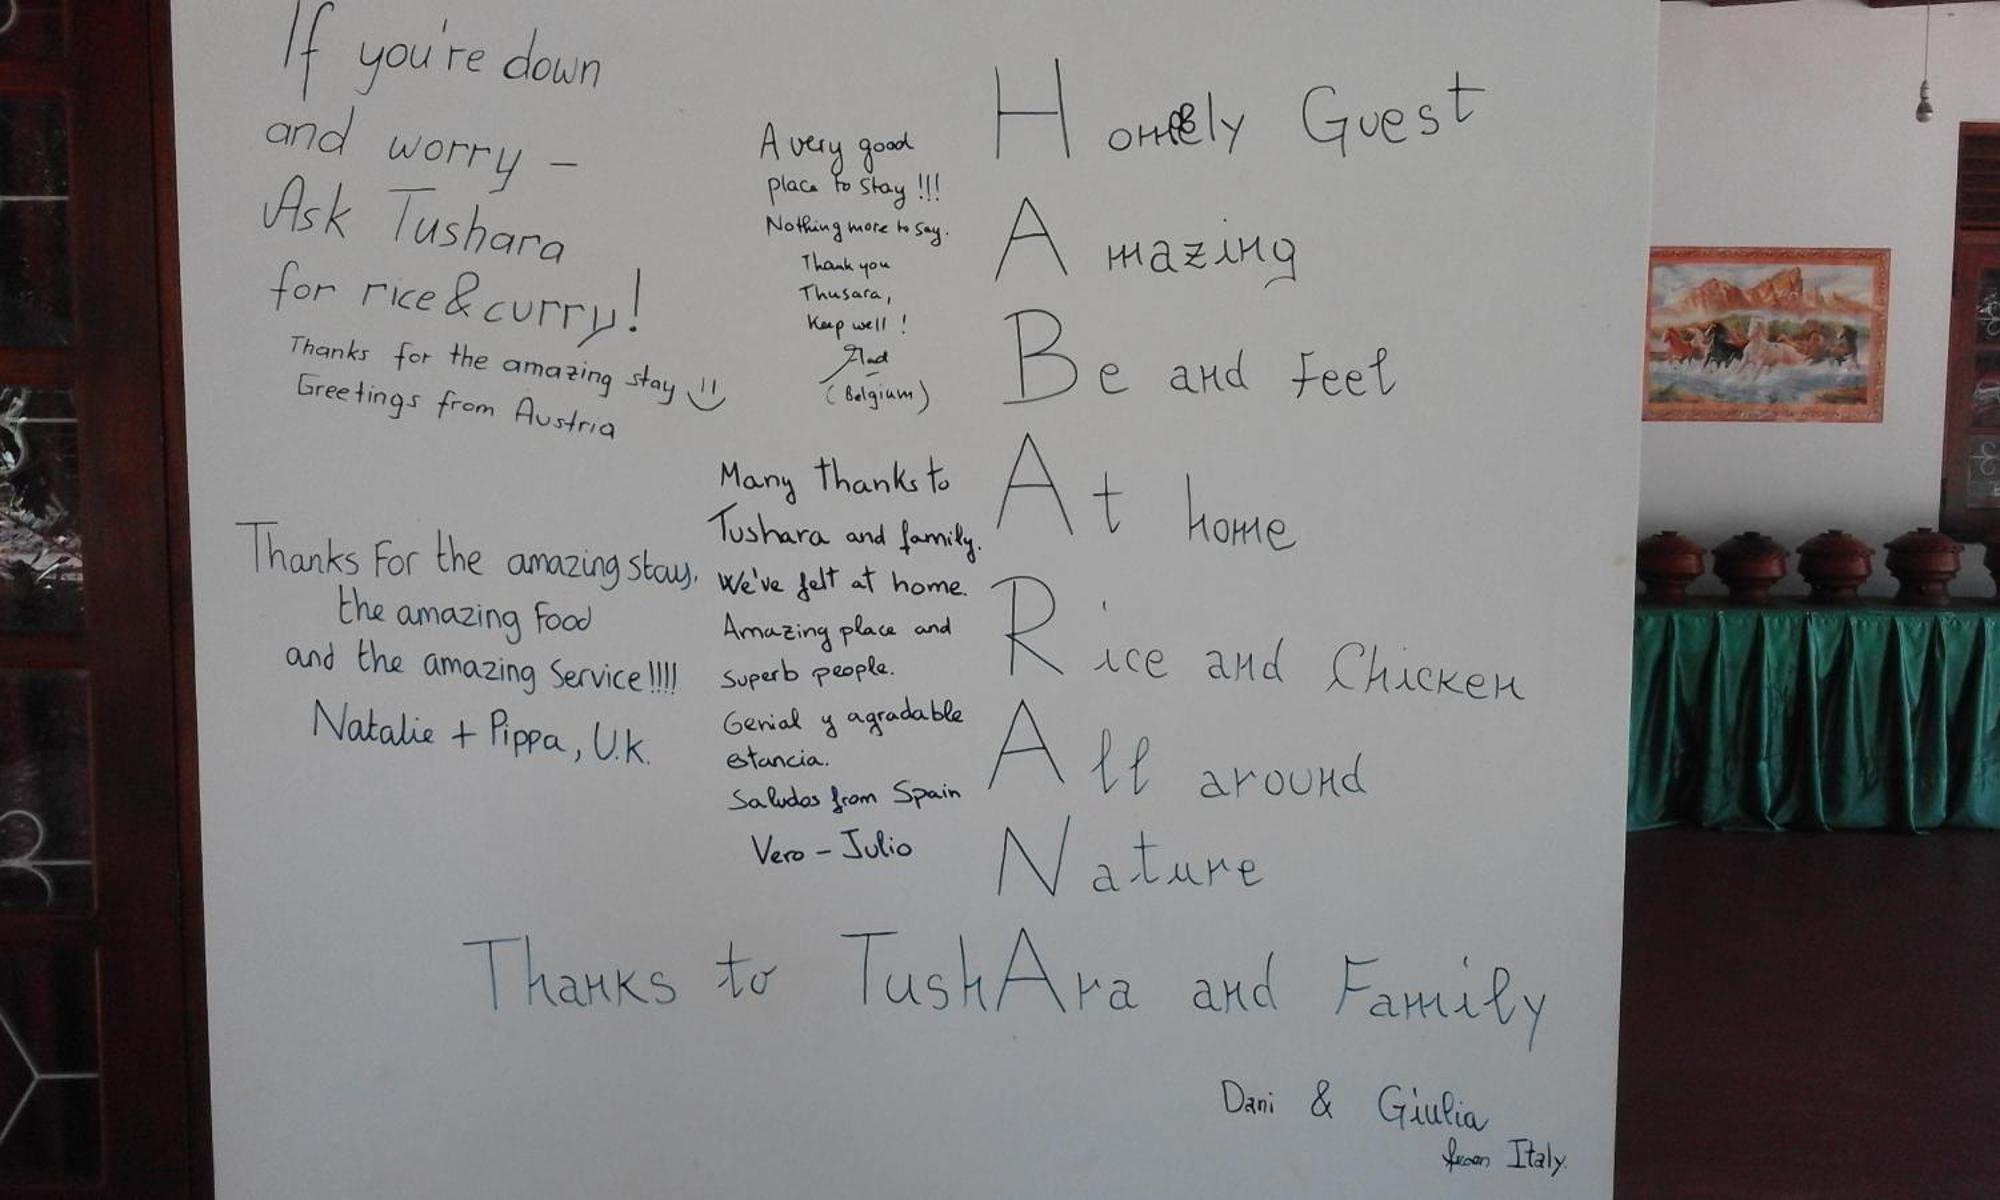 If you're down
and worry -
Ask Tushara
for rice & curry!
Thanks for the amazing stay
Greetings from Austria
Thanks For the amazing stay,
the amazing Food
and the amazing Service!!!!
Natalie + Pippa, U.K.
A very good
place to stay !!!
Nothing more to say.
Thank you
Thusara,
Keep well !
(Belgium)
Many thanks to
Tushara and family.
We've felt at home.
Amazing place and
superb people.
Genial y agradable
estancia.
Saludos from Spain
Vero - Julio
Homely Guest
Amazing
Be and Feel
At home
Rice and Chicken
All around
Nature
Thanks to TushAra and Family
Dani & Giulia
from Italy